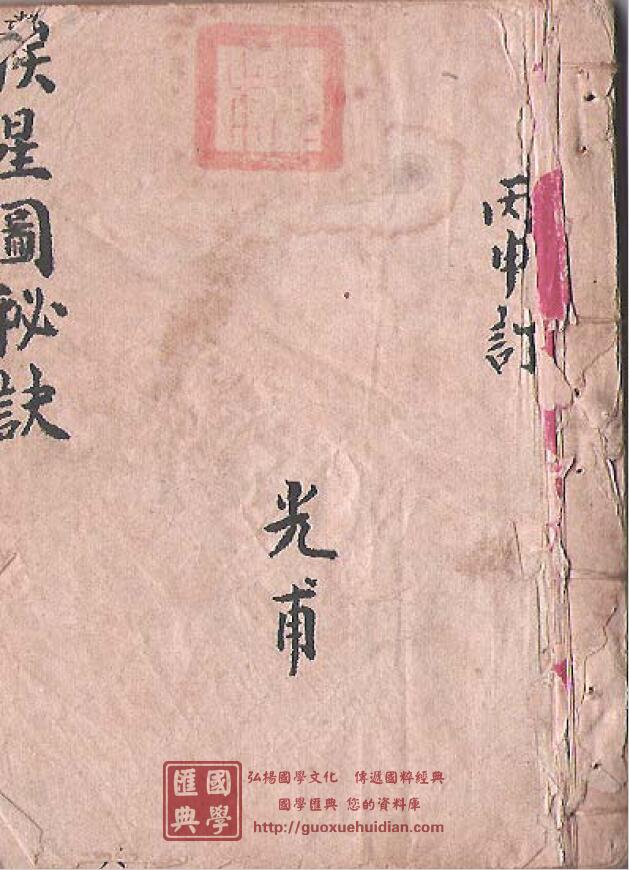 丙申訂
光甫
星圖秘訣
國學匯典
弘揚國學文化　傳遞國粹經典
國學匯典 您的資料庫
http://guoxuehuidian.com